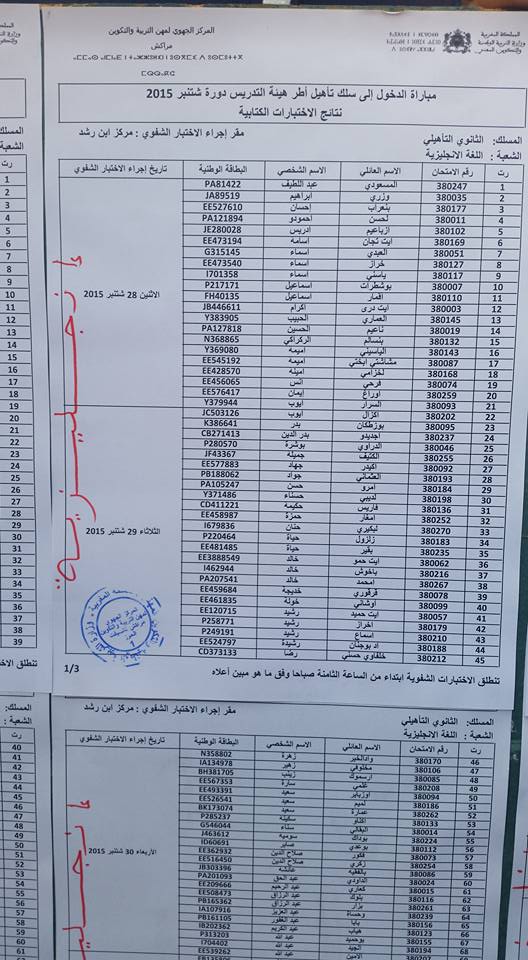 المملكة المغربية
المركز الجهوي لمهن التربية والتكوين
مراكش
مباراة الدخول إلى سلك تأهيل أطر هيئة التدريس دورة شتنبر 2015
نتائج الاختبارات الكتابية
المسلك: الثانوي التأهيلي
الشعبة: اللغة الانجليزية
مقر إجراء الاختبار الشفوي : مركز ابن رشد
رت رقم الامتحان الاسم العائلي الاسم الشخصي البطاقة الوطنية تاريخ إجراء الاختبار الشفوي
1 380247 المسعودي عبد اللطيف PA81422
2 380035 وزري ابراهيم JA89519
3 380177 بنعراب احسان EE527610
4 380011 لحسن احمودو PA121894
5 380102 ازباعيم ادريس JE280028
6 380169 ايت تجان اسامة EE473194
7 380051 العيدي اسماء G315145
8 380127 خراز اسماء EE473540
9 380117 ياسني اسماء I701358
10 380007 بوشطرات اسماعيل P217171
11 380110 اقمار اسماعيل FH40135
12 380003 ايت دری اكرام JB446611
13 380145 العماري الحبيب Y383905
14 380019 ناعيم الحسين PA127818
15 380132 بنسالم الركراكي N368865
16 380143 الياسيني اميمة Y369080
17 380087 اميمة EE545192
18 380168 لخزامي امينة EE428570
19 380074 فرحي انس EE456065
20 380259 اوراغ ايمان EE576417
21 380093 السرار ايوب Y379944
22 380202 اكزال ايوب JC503126
23 380095 بوزطكان بدر K386641
24 380237 اجديدو بدر الدين CB271413
25 380046 الدراوي بوشرة P280570
26 380255 الكثيف جميلة JF43367
27 380092 اكيدر جهاد EE577883
28 380193 العثماني جواد PB188062
29 380184 امرو حسن PA105247
30 380198 لديبي حسناء Y371486
31 380136 فاريس حكيمة CD411221
32 380252 امغار حمزة EE458987
33 380270 ليكبيري حنان I679836
34 380183 زلزول حياة P220464
35 380235 بقير حياة EE481485
36 380062 ايت حمو خالد EE3888549
37 380216 باخوش خالد I462944
38 380267 امحمد خالد PA207541
39 380078 قرقوري خديجة EE459684
40 380099 اوشاني خولة EE461835
41 380057 ايت حميد رشيد EE120715
42 380179 اخراز رشيد P258771
43 380210 اسماع رشيد P249191
44 380188 اد بوجنان رشيدة EE524797
45 380212 خلفاوي حسني رضا CD373133
الاثنين 28 شتنبر 2015
الثلاثاء 29 شتنبر 2015
تنطلق الاختبارات الشفوية ابتداء من الساعة الثامنة صباحا وفق ما هو مبين أعلاه
1/3
المسلك: الثانوي التأهيلي
الشعبة: اللغة الانجليزية
مقر إجراء الاختبار الشفوي : مركز ابن رشد
رت رقم الامتحان الاسم العائلي الاسم الشخصي البطاقة الوطنية تاريخ إجراء الاختبار الشفوي
46 380170 وادالخير زهرة N358802
47 380106 مخلوفي زهير IA134978
48 380085 ارسموك زينب BH381705
49 380208 غلمي سارة EE567353
50 380094 اوزبابر سعيد EE493391
51 380186 لميم سعيد EE526541
52 380262 عمارة سعيد BK173074
53 380133 اكناو سكينة P285237
54 380014 البقالي سناء G546044
55 380224 بوداك سومية J463612
56 380112 بوعدي صابر ID60691
57 380073 فكور صلاح الدين EE362932
58 380254 زكري صلاح الدين EE516450
59 380086 بالفقيه عائشة JB303396
60 380024 الداودي عبد الحق PA201093
61 380015 كماري عبد الرحيم EE209666
62 380116 بلوك عبد الرزاق EE508473
63 380261 بزار عبد الرزاق PB165362
64 380239 وحساة عبد العزيز IA107916
65 380156 بابا عبد الغفور PB161105
66 380123 هباب عبد الكريم IB202362
67 380155 بوحميد عبد الله P313203
68 380194 الجيد عبد الله I704402
الامين عبد الله EE539262
الأربعاء 30 شتنبر 2015